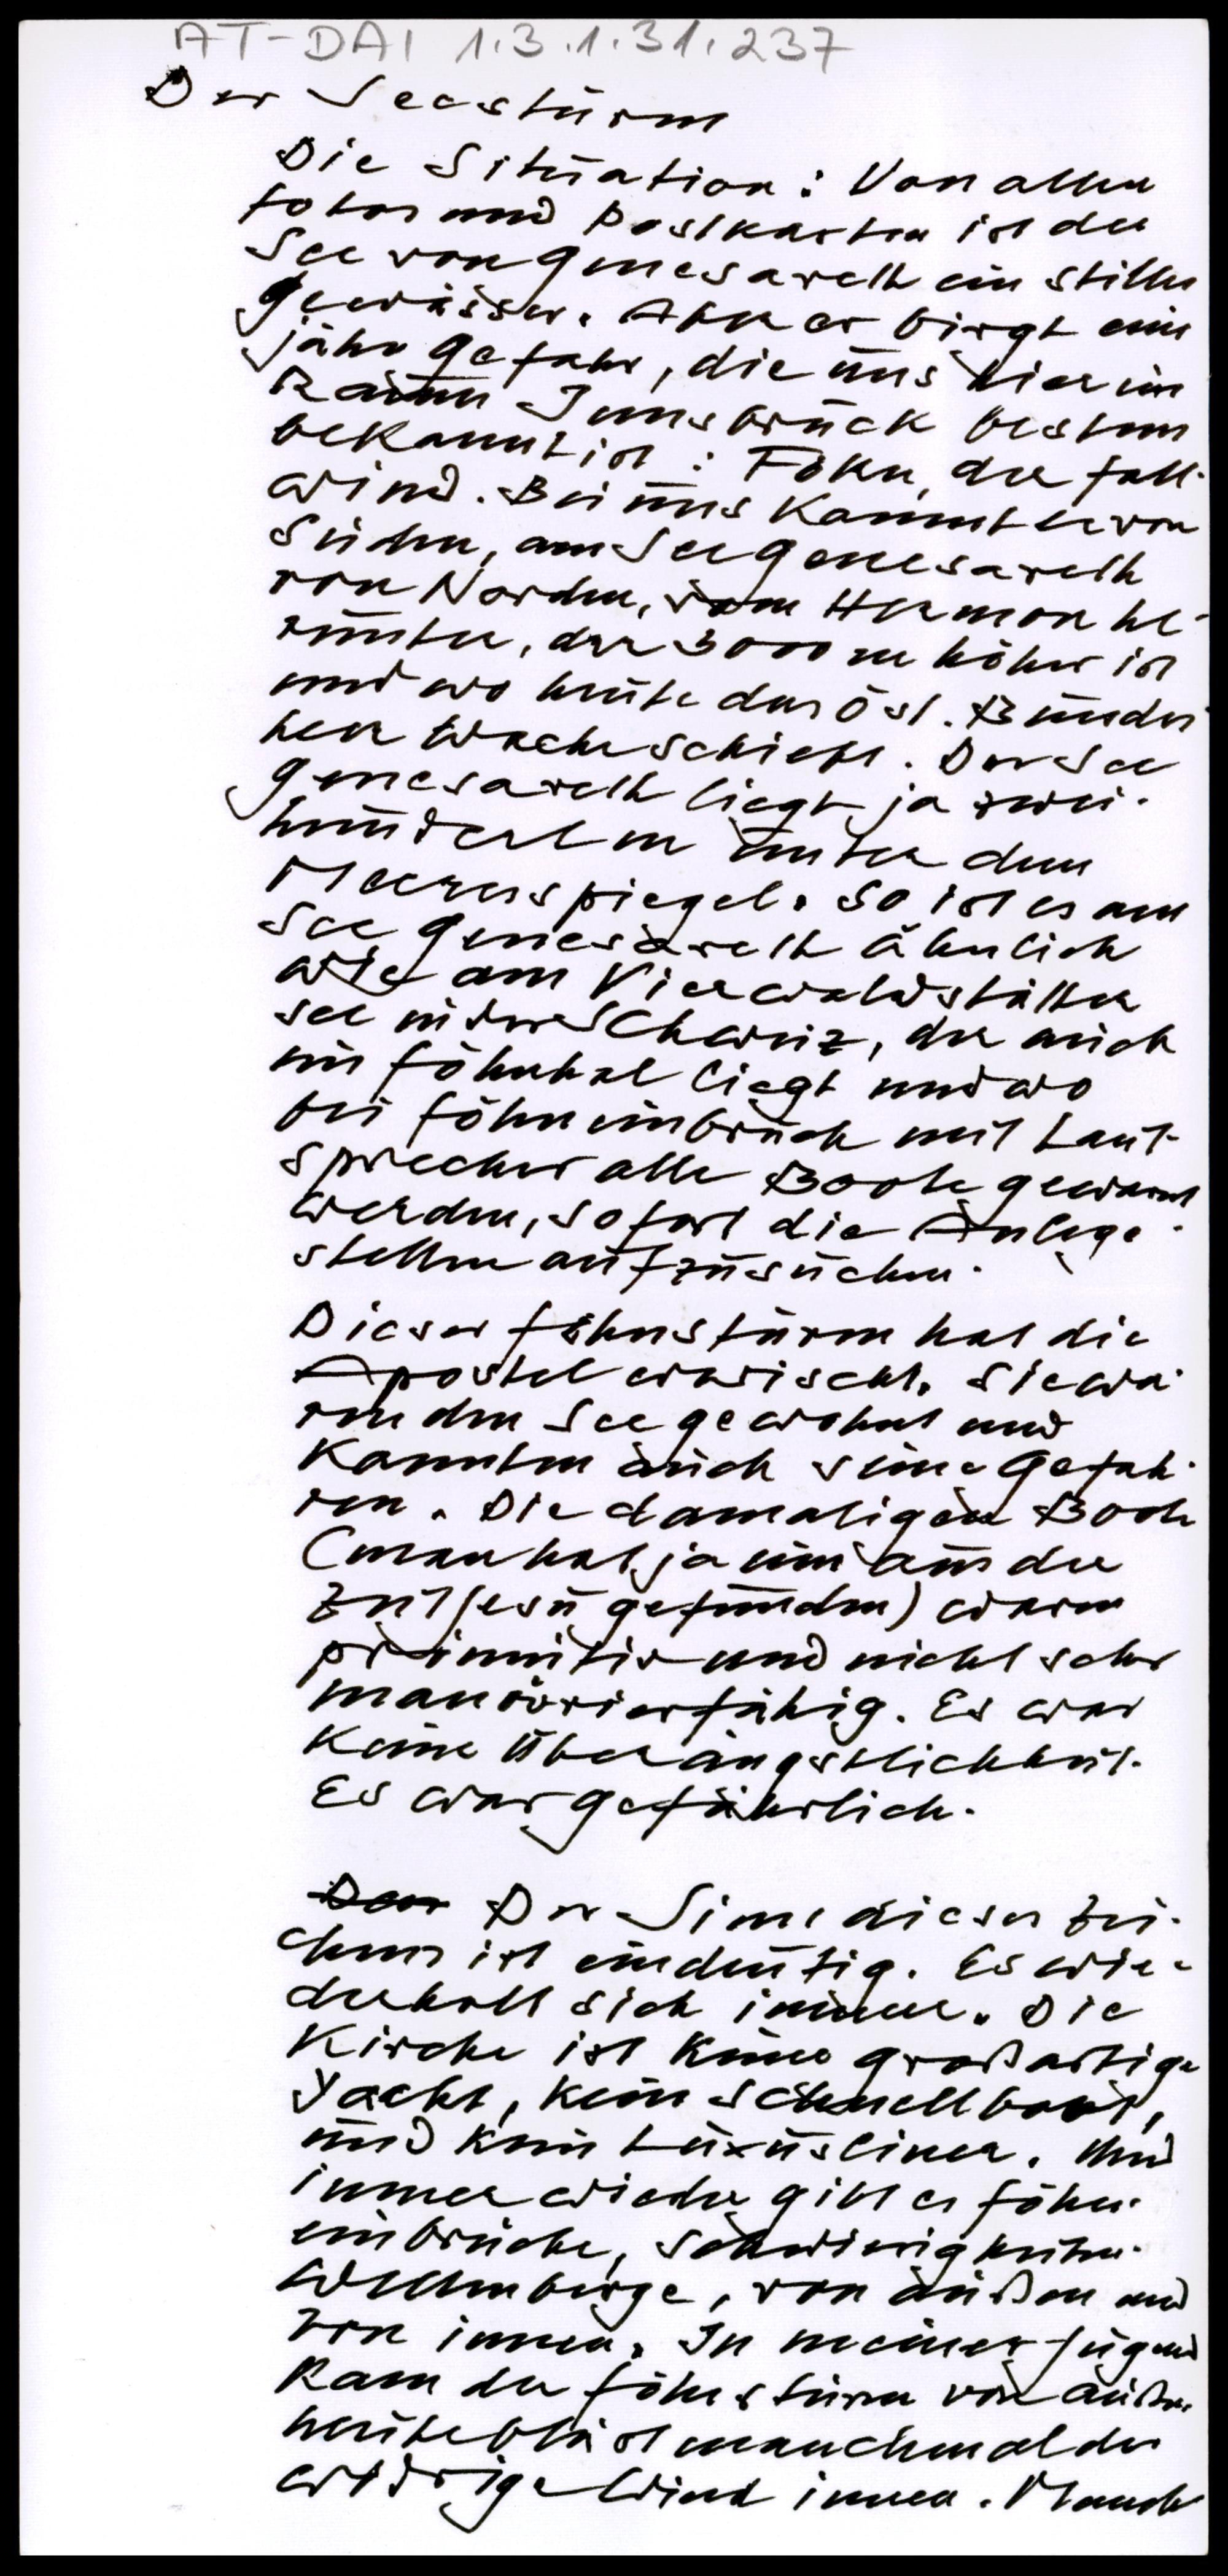 AT-DAI 1.3.1.31.237
Der Seesturm
Die Situation: Von allen
Fotos und Postkarten ist der
See von Genesareth ein stilles
Gewässer. Aber er birgt eine
jähe Gefahr, die uns hier im
Raum Innsbruck bestens
bekannt ist: Föhn, der Fall-
wind. Bei uns kommt er von
Süden, am See Genesareth
von Norden, vom Hermon he-
runter, der 3000 m höher ist
und wo heute das öst. Bundes
heer Wache schiebt. Der See
Genesareth liegt ja zwei-
hundert m unter dem
Meeresspiegel. So ist es am
See Genesareth ähnlich
wie am Vierwaldstätter
see in der Schweiz, der auch
im Föhntal liegt und wo
bei Föhneinbruch mit Laut-
sprecher alle Boote gewarnt
werden, sofort die Anlege-
stellen aufzusuchen.
Dieser Föhnsturm hat die
Apostel erwischt. Sie wa-
ren den See gewohnt und
kannten auch seine Gefah-
ren. Die damaligen Boote
(man hat ja eins aus der
Zeit Jesu gefunden) waren
primitiv und nicht sehr
manövrierfähig. Es war
keine Überängstlichkeit.
Es war gefährlich.
Der Der Sinn dieses Zei-
chens ist eindeutig. Es wie-
derholt sich immer. Die
Kirche ist keine großartige
Yacht, kein Schnellboot,
und kein Luxusliner. Und
immer wieder gibt es Föhn-
einbrüche, Schwierigkeiten-
Wellenberge, von außen und
von innen. In meiner Jugend
kam der Föhnsturm von außen
heute bläst manchmal der
widrige Wind innen. Manch